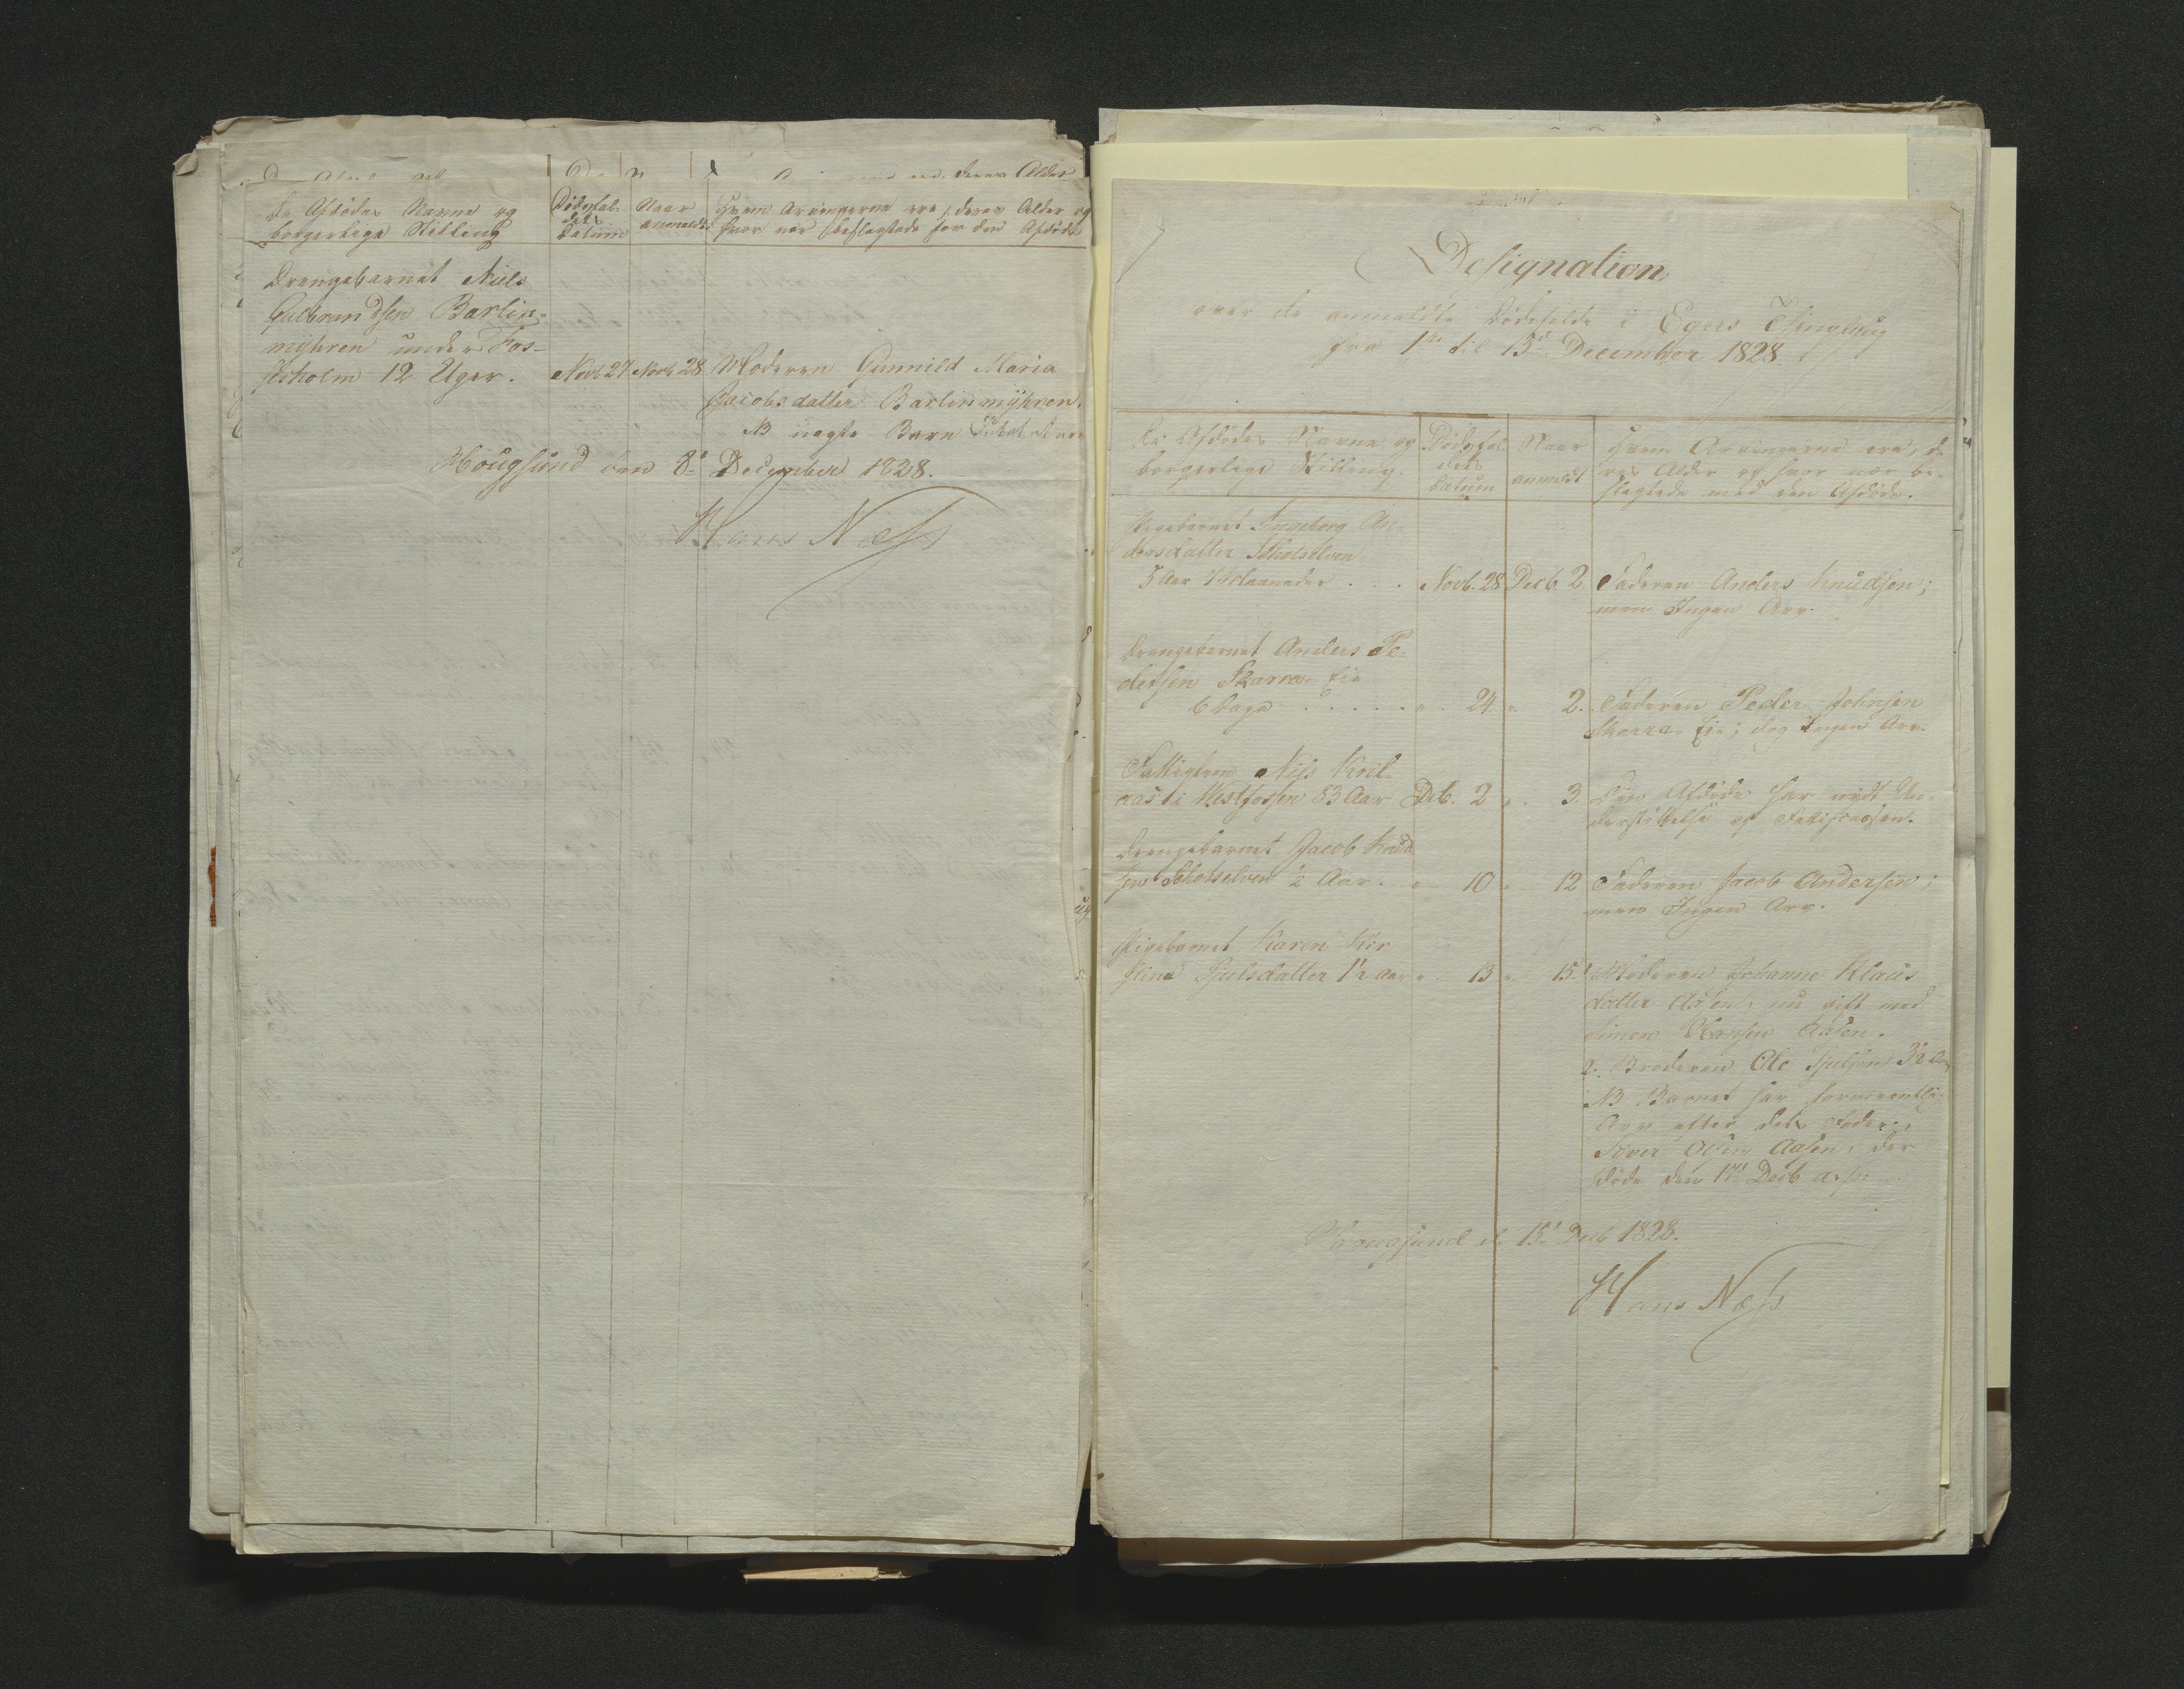 De Afdødes Navne og
borgerlige Stilling
Dødsfal-
dets
Datum
Naar
anmeldt
Hvem Arvingerne ere, deres Alder og
hvor nær beslægtede for den Afdøde
Drengebarnet Niels
Gulbrandsen Barlin-
myhren under Fos-
sesholm 12 Uger. Novb 27 Novb 28 Moderen Gunnild Maria
Jacobsdatter Barlinmyhren.
NB uægte Barn
Hougsund den 8de December 1828.
Hans Næss
Designation
over de anmeldte Dødsfalde i Egers Thinglaug
fra 1te til 15de December 1828.
De Afdødes Navne og
borgerlige Stilling.
Dødsfal-
dets
Datum
Naar
anmeldt
Hvem Arvingerne ere, de-
res Alder og hvor nær be-
slægtede med den Afdøde.
Pigebarnet Ingeborg An-
dersdatter Schotselven
5 Aar Maaneder . . . Novb. 28 Decb. 2. Faderen Anders Knudsen;
men Ingen Arv.
Drengebarnet Anders Pe-
dersen Skarra Eie
6 Dage . . . . . " 24 " 2. Faderen Peder Johnsen
Skarra Eie; dog Ingen Arv.
Fattiglem Nils Kril-
aas i Vestfossen 83 Aar Deb. 2 " 3 Den Afdøde har nydt Un-
derstøttelse af Fatigkassen.
Drengebarnet Jacob Knud
sen Schotselven ½ Aar. " 10 " 12 Faderen Jacob Andersen;
men Ingen Arv.
Pigebarnet Karen Kir
stine Sjulsdatter 1½ Aar " 13 " 15. Moderen Johanne Klaus
datter Aasen, nu gift med
Simen Hansen Aasen.
2. Broderen Ole Sjulsen 3½ Aar
NB Barnet har formeentlig
Arv efter dets Fader,
Olsen Aasen, der
døde den 17de Decb
Hougsund d. 15de Decb 1828.
Hans Næss